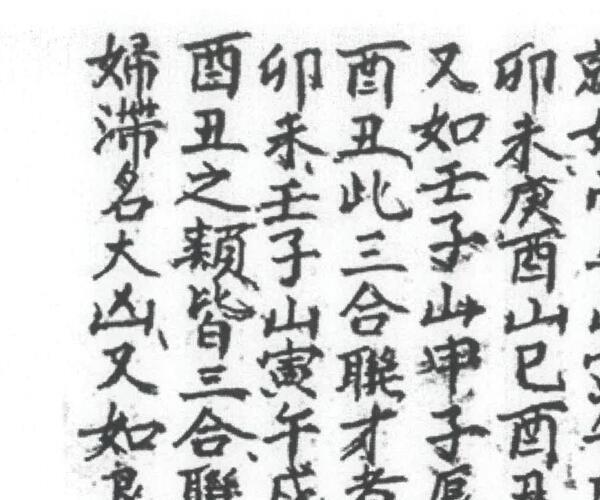 卯未庚酉山巳酉丑
又如壬子山申子辰
酉丑此三合聯才者
卯未壬子山寅午戌
酉丑之類皆三合聯
婦滞名大凶又如艮